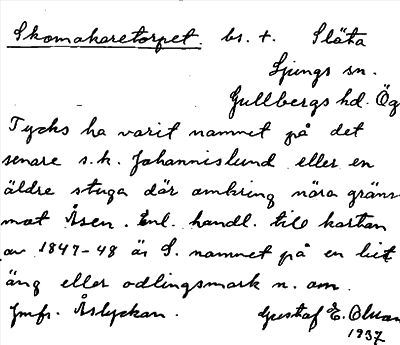 Skomakaretorpet. bs. t. Släta
Ljungs sn.
Gullbergs hd. Ög
Tycks ha varit namnet på det
senare s.k. Johannislund eller en
äldre stuga där omkring nära gräns
mot Åsen. Enl. handl. till kartan
av 1847-48 är S. namnet på en liten
äng eller odlingsmark n. om.
Jmfr. Åslyckan. Gustaf E. Olsson
1937